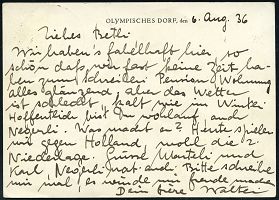 OLYMPISCHES DORF, den 6. Aug. 36
Liebes Bethi
Wir haben's fabelhaft hier, so
schön dass wir fast keine Zeit ha-
ben zum schreiben. Pension, Wohnung
alles glänzend, aber das Wetter
ist schlecht, kalt wie im Winter
Hoffentlich bist Du wohlauf und
Was macht er? Heute spielen
wir gegen Holland, wohl die 2.
Niederlage. Grüsse und
Karl und Bitte schreibe
mir mal, es würde mir freude machen
Dein Walter